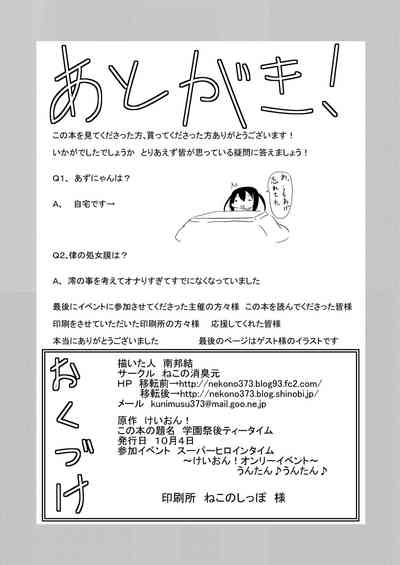 あとがき！
この本を見てくださった方、買ってくださった方ありがとうございます！
いかがでしたでしょうか　とりあえず皆が思っている疑問に答えましょう！
Q１、　あずにゃんは？
A、　自宅です→
Q２、律の処女膜は？
A、　澪の事を考えてオナりすぎてすでになくなっていました
最後にイベントに参加させてくださった主催の方々様　この本を読んでくださった皆様
印刷をさせていただいた印刷所の方々様　　応援してくれた皆様
本当にありがとうございました　　　最後のページはゲスト様のイラストです
おくづけ
描いた人　南邦結
サークル　ねこの消臭元
HP　移転前→http://nekono373.blog93.fc2.com/
移転後→http://nekono373.blog.shinobi.jp/
メール　kunimusu373@mail.goo.ne.jp
原作　けいおん！
この本の題名　学園祭後ティータイム
発行日　１０月４日
参加イベント　スーパーヒロインタイム
～けいおん！オンリーイベント～
うんたん♪うんたん♪
印刷所　ねこのしっぽ　様